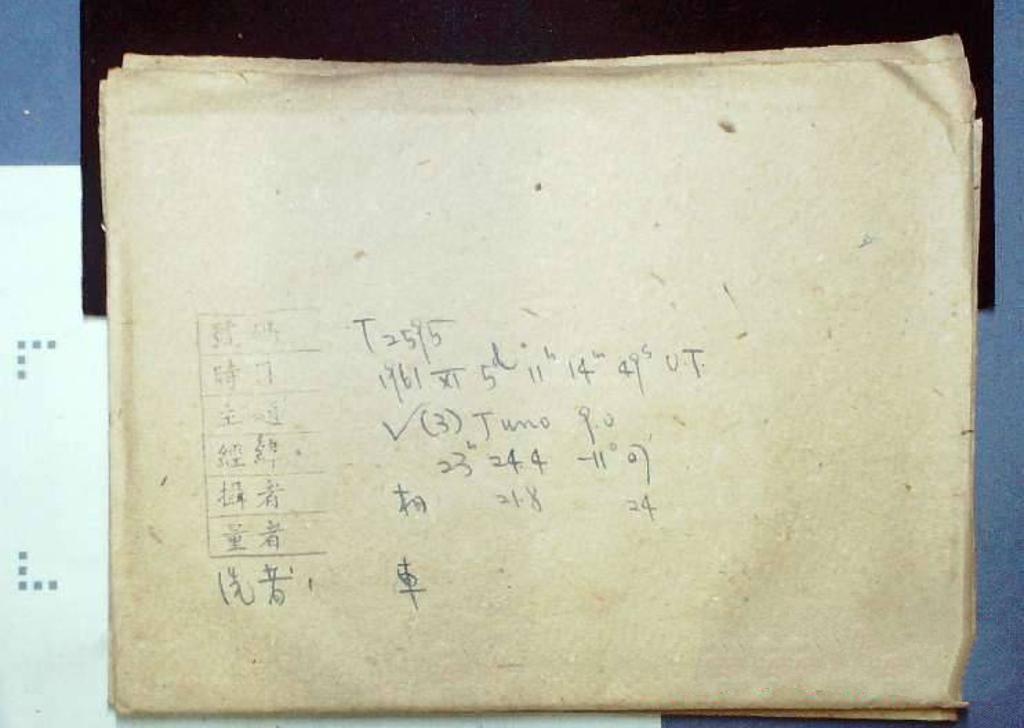 號碼 T 2595
時刻 1961 XI 5ᵈ 11ʰ 14ᵐ 49ˢ U.T.
✓(3) Juno 9.0
經緯 23ʰ 24.4 -11° 07'
攝者 21.8 24
量者
洗者 車